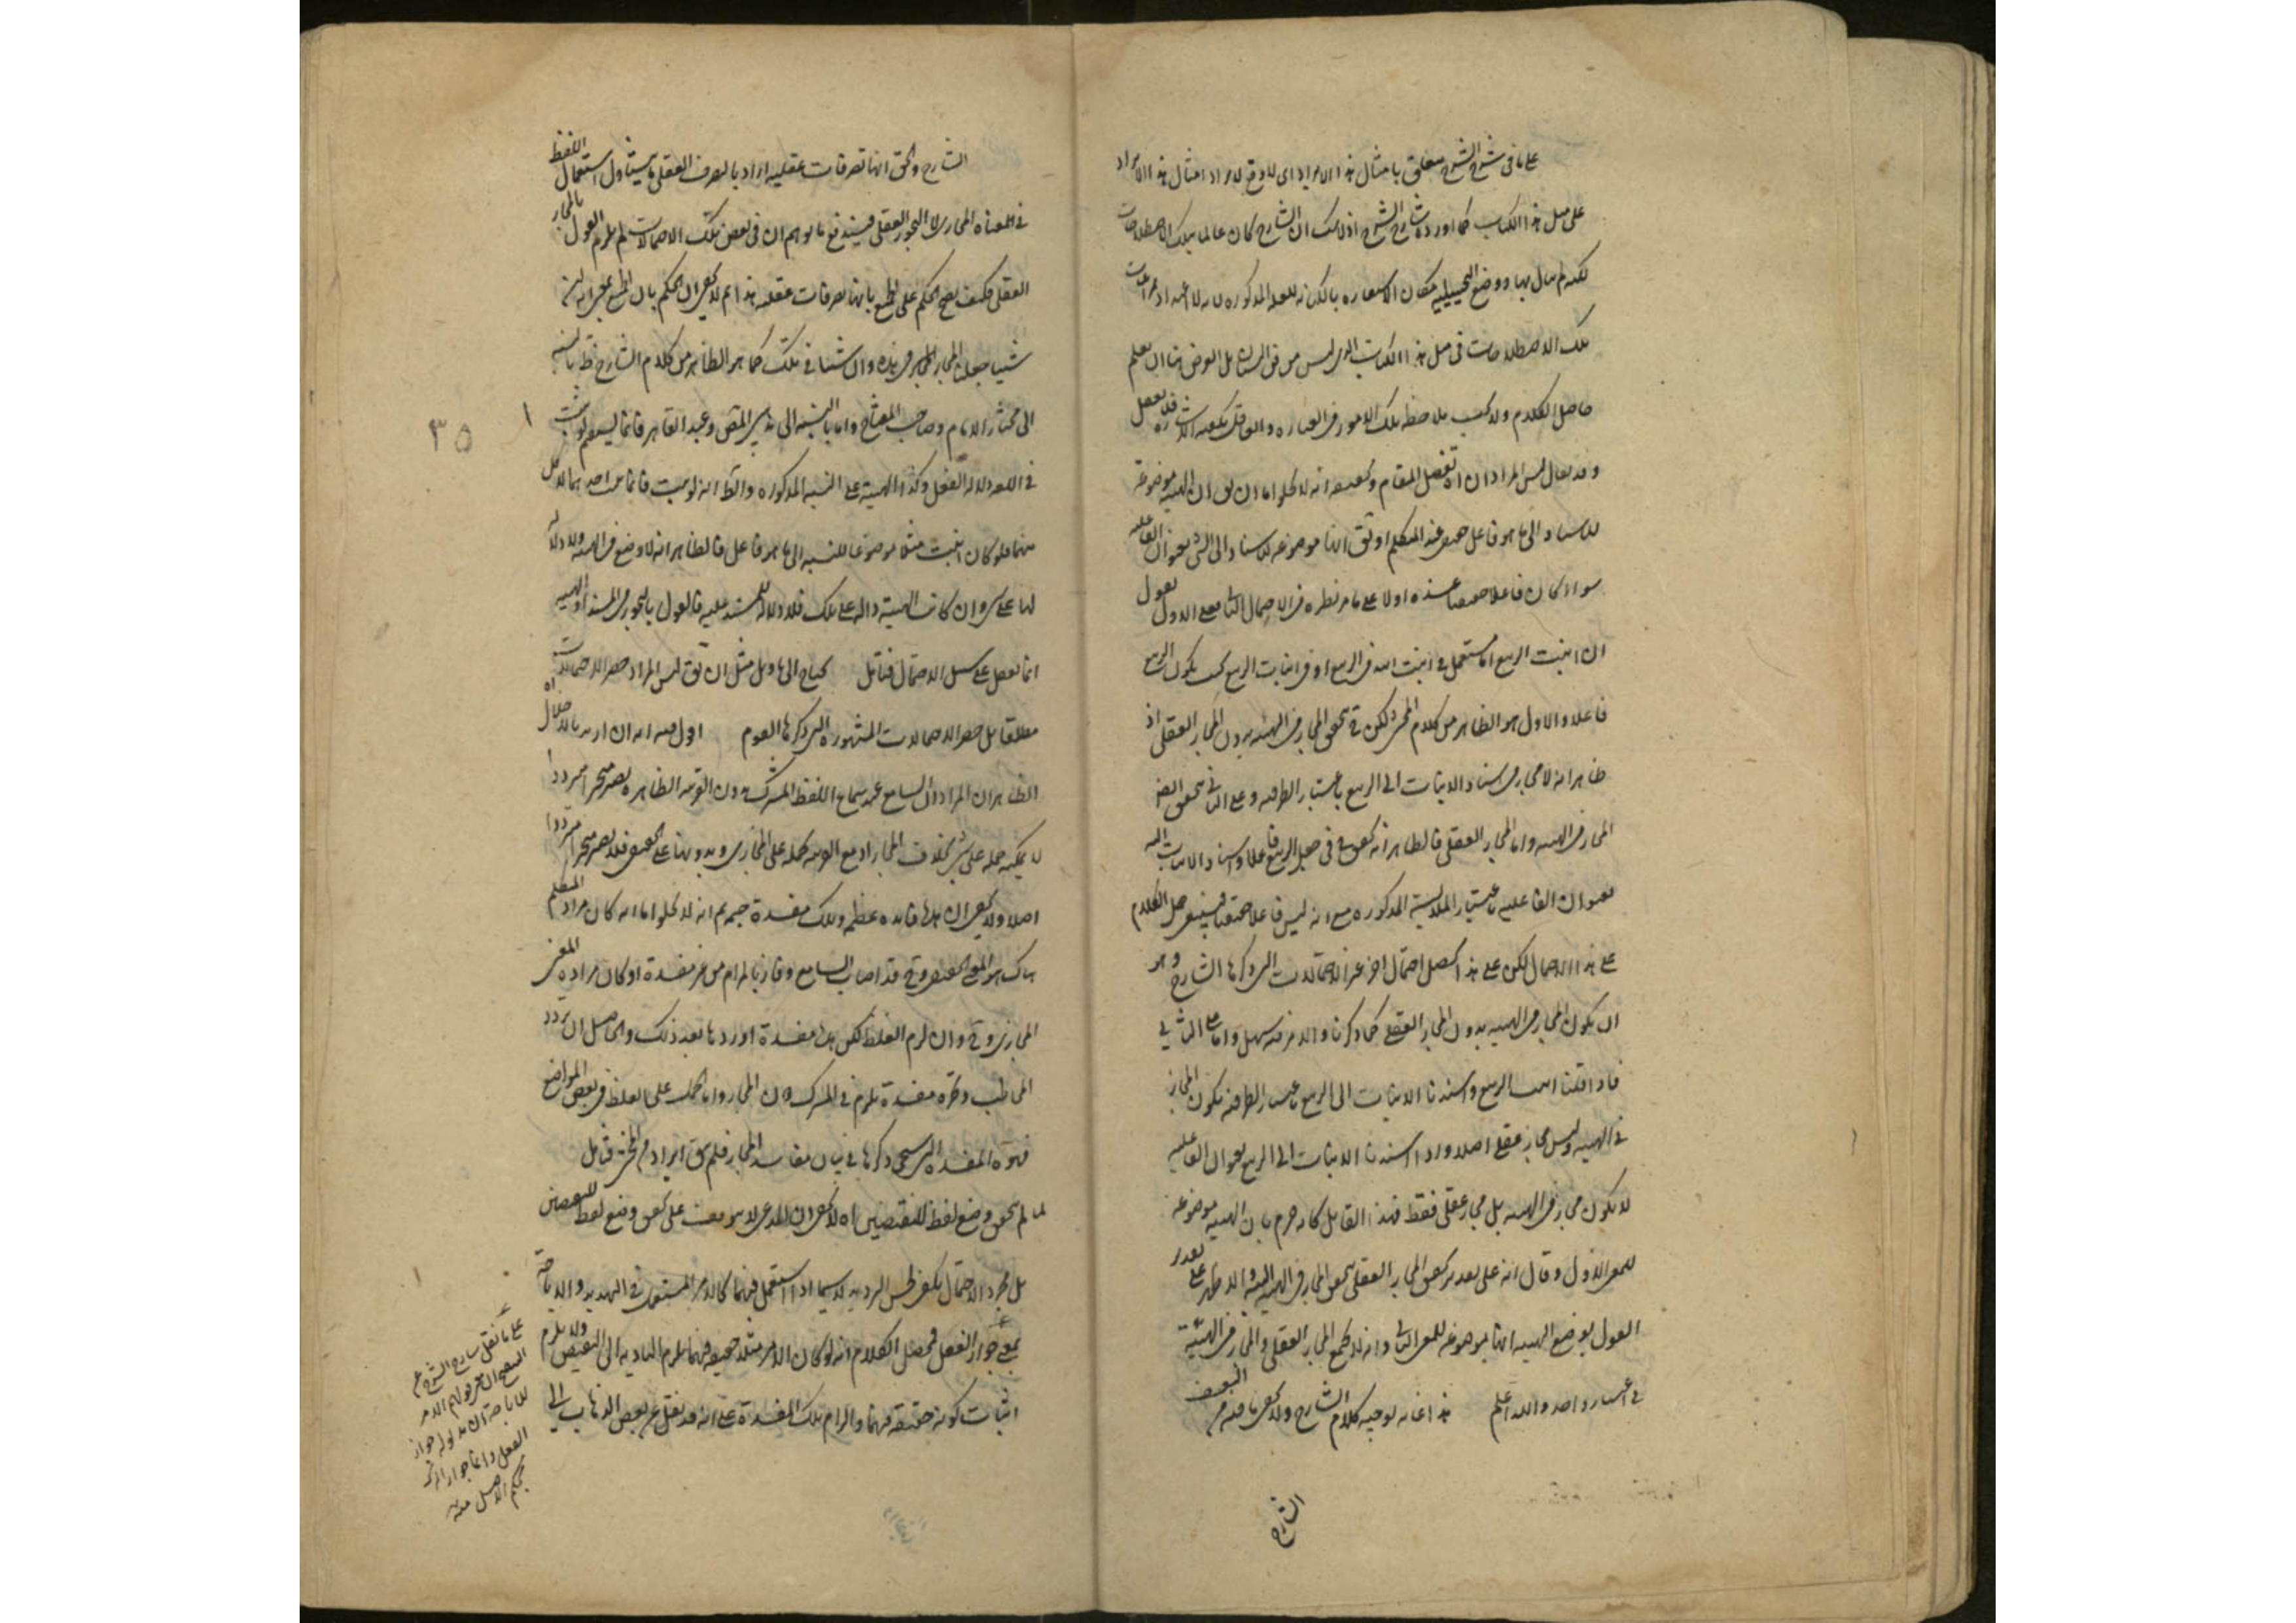 على ما فى شرح الشرح معلق بامثال هذا الايراد اى لا وقع لايراد امثال هذا الايراد
على مثل هذا الكتاب كما اورده شارح الشرح اذ لا شك ان الشارح كان عالما بتلك الاصطلاحات
لكنه لم يبال بها ووضع التخييلية مكان الاستعاره بالكنايه للعله المذكوره
تلك الاصطلاحات فى مثل هذا الكتاب الذى ليس من فن البيان بل الغرض هنا ان يعلم
حاصل الكلام ولا يجب ملاحظه تلك الامور فى العباره والعاقل تكفيه الاشاره فلا تغفل
وقد يقال ليس المراد ان اه تفصيل المقام وتحقيقه انه لا يخلو اما ان يق ان الهيئه موضوعة
للاسناد الى ما هو فاعل حقيقى عند المتكلم او يق انها موضوعه للاسناد الى الشئ بعنوان الفاعليه
سواء كان فاعلا حقيقيا عنده اولا على ما مر نظره فى الاحتمال الثانى فعلى الاول نقول
ان انبت الربيع اما مستعمل فى انبت الله فى الربيع او فى اثبات الربيع بحيث يكون الربيع
فاعلا والاول هو الظاهر من كلام المحشى لكن ح يتحقق المجاز فى الهيئه بدون المجاز العقلى اذ
ظاهر انه لا مجاز فى اسناد الانبات الى الربيع باعتبار الظرفيه وعلى الثانى يتحقق ايضا
المجاز فى الهيئه واما المجاز العقلى فالظاهر انه يتحقق ح فى جعل الربيع فاعلا واسناد الانبات اليه
بعنوان الفاعليه باعتبار الملابسة المذكوره مع انه ليس فاعلا حقيقيا فينبغى حمل الكلام
على هذا الاحتمال لكن على هذا يحصل احتمال اخر غير الاحتمالات التى ذكرها الشارح وهو
ان يكون المجاز فى الهيئه بدون المجاز العقلى كما ذكرنا والامر فيه سهل واما على الثانى
فاذا قلنا انبت الربيع واسندنا الانبات الى الربيع باعتبار الظرفيه يكون المجاز
فى الهيئه وليس مجاز عقلى اصلا واذا اسندنا الانبات الى الربيع بعنوان الفاعليه
لا يكون مجاز فى الهيئه بل مجاز عقلى فقط فهذا القائل كانه جزم بان الهيئه موضوعه
للمعنى الاول وقال انه على تقدير تحقق المجاز العقلى يتحقق المجاز فى الهيئه البته والاظهر على تقدير
القول بوضع الهيئه انها موضوعه للمعنى الثانى وانه لا يجتمع المجاز العقلى والمجاز فى الهيئة
فى اعتبار واحد والله اعلم هذا غايه توجيه كلام الشارح ولا يخفى ما فيه من التعسف
الشارح
الشارح والحق انها تصرفات عقليه اراد بالتصرف العقلى ما يتناول استعمال اللفظ
فى المعناه المجازى لا التجوز العقلى فيندفع ما توهم ان فى بعض تلك الاحتمالات لم يلزم القول بالمجاز
العقلى فكيف يصح الحكم على الجميع بانها تصرفات عقليه هذا ثم لا يخفى ان الحكم بان
شيئا جعل المجاز المركب فى هذه وان شئنا فى تلك كما هو الظاهر من كلام الشارح بالنسبه
الى مختار الامام وصاحب المفتاح واما بالنسبه الى مذهبى المص وعبد القاهر فانما يستقيم لو ثبت
فى اللغه دلاله الفعل وكذا الهيئة على النسبه المذكوره والظ انه لو ثبت فانما يثبت احدهما لا كل
منهما فلو كان انبت مثلا موضوعا للنسبه الى ما هو فاعل فالظاهر انه لا وضع فى الهيئه ولا دلاله
لها على شئ وان كانت الهيئة داله على تلك فلا دلاله للمسند عليه فالقول بالتجوز فى المسند او الهيئه
انما يصح على سبيل الاحتمال فتامل يحتاج الى تاويل مثل ان يق ليس المراد حصر الاحتمالات
مطلقا بل حصر الاحتمالات المشهوره التى ذكرها القوم اقول فيه انه ان اريد بالاخلال اه
الظاهر ان المراد ان السامع عند سماع اللفظ المشترك بدون القرينه الظاهره يصير متحيرا مترددا
لا يمكنه حمله على شئ بخلاف المجاز اذ مع القرينه يحمله على المجازى وبدونها على الحقيقى فلا يصير متحيرا مترددا
اصلا ولا يخفى ان هذه فائده عظيمه وتلك مفسدة جسيمه ثم انه لا يخلو اما انه كان مراد المتكلم
هناك هو المعنى الحقيقى وح قد اصاب السامع وفاز بالمرام من غير مفسدة او كان مراده المعنى
المجازى وح وان لزم الغلط لكن هذه مفسدة اوردها بعد ذلك والحاصل ان تردد
المخاطب وتحيره مفسدة يلزم فى المشترك دون المجاز واما الحمل على الغلط فى بعض المواضع
فهذه المفسده التى سيجئ ذكرها فى بيان مفاسد المجاز فلم يبق ايراد م المحشى فتامل
لما لم يتحقق وضع لفظ للنقيضين اه لا يخفى ان المدعى لا يتوقف على تحقق وضع لفظ للنقيضين
بل مجرد الاحتمال يكفى لحسن الترديد لا سيما اذا استعمل فيهما كالامر المستعمل فى التهديد والاباحة
بمعنى جواز الفعل فمحصل الكلام انه لو كان الامر مثلا حقيقه فيهما يلزم التاديه الى النقيض ولا يلزم
اثبات كونه حقيقه فيهما والزام تلك المفسدة على انه قد نقل عن بعض الذهاب الى
٣٥
على ما نقل شارح الشرح عن
البعض ان معنى قولهم الامر
للاباحة ان مدلوله جواز
الفعل واما جواز الترك
بحكم الاصل منه